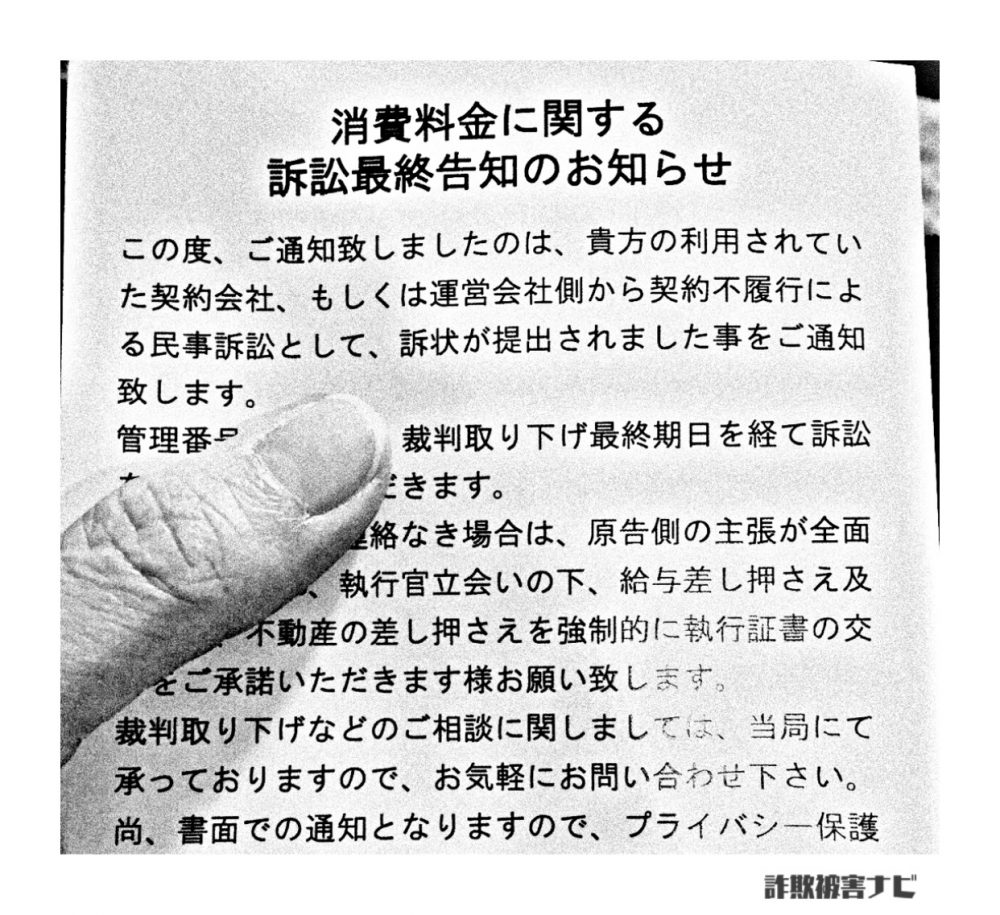 消費料金に関する
訴訟最終告知のお知らせ
この度、ご通知致しましたのは、貴方の利用されてい
た契約会社、もしくは運営会社側から契約不履行によ
る民事訴訟として、訴状が提出されました事をご通知
致します。
管理番号 裁判取り下げ最終期日を経て訴訟
だきます。
連絡なき場合は、原告側の主張が全面
、執行官立会いの下、給与差し押さえ及
不動産の差し押さえを強制的に執行証書の交
をご承諾いただきます様お願い致します。
裁判取り下げなどのご相談に関しましては、当局にて
承っておりますので、お気軽にお問い合わせ下さい。
尚、書面での通知となりますので、プライバシー保護
詐欺被害ナビ